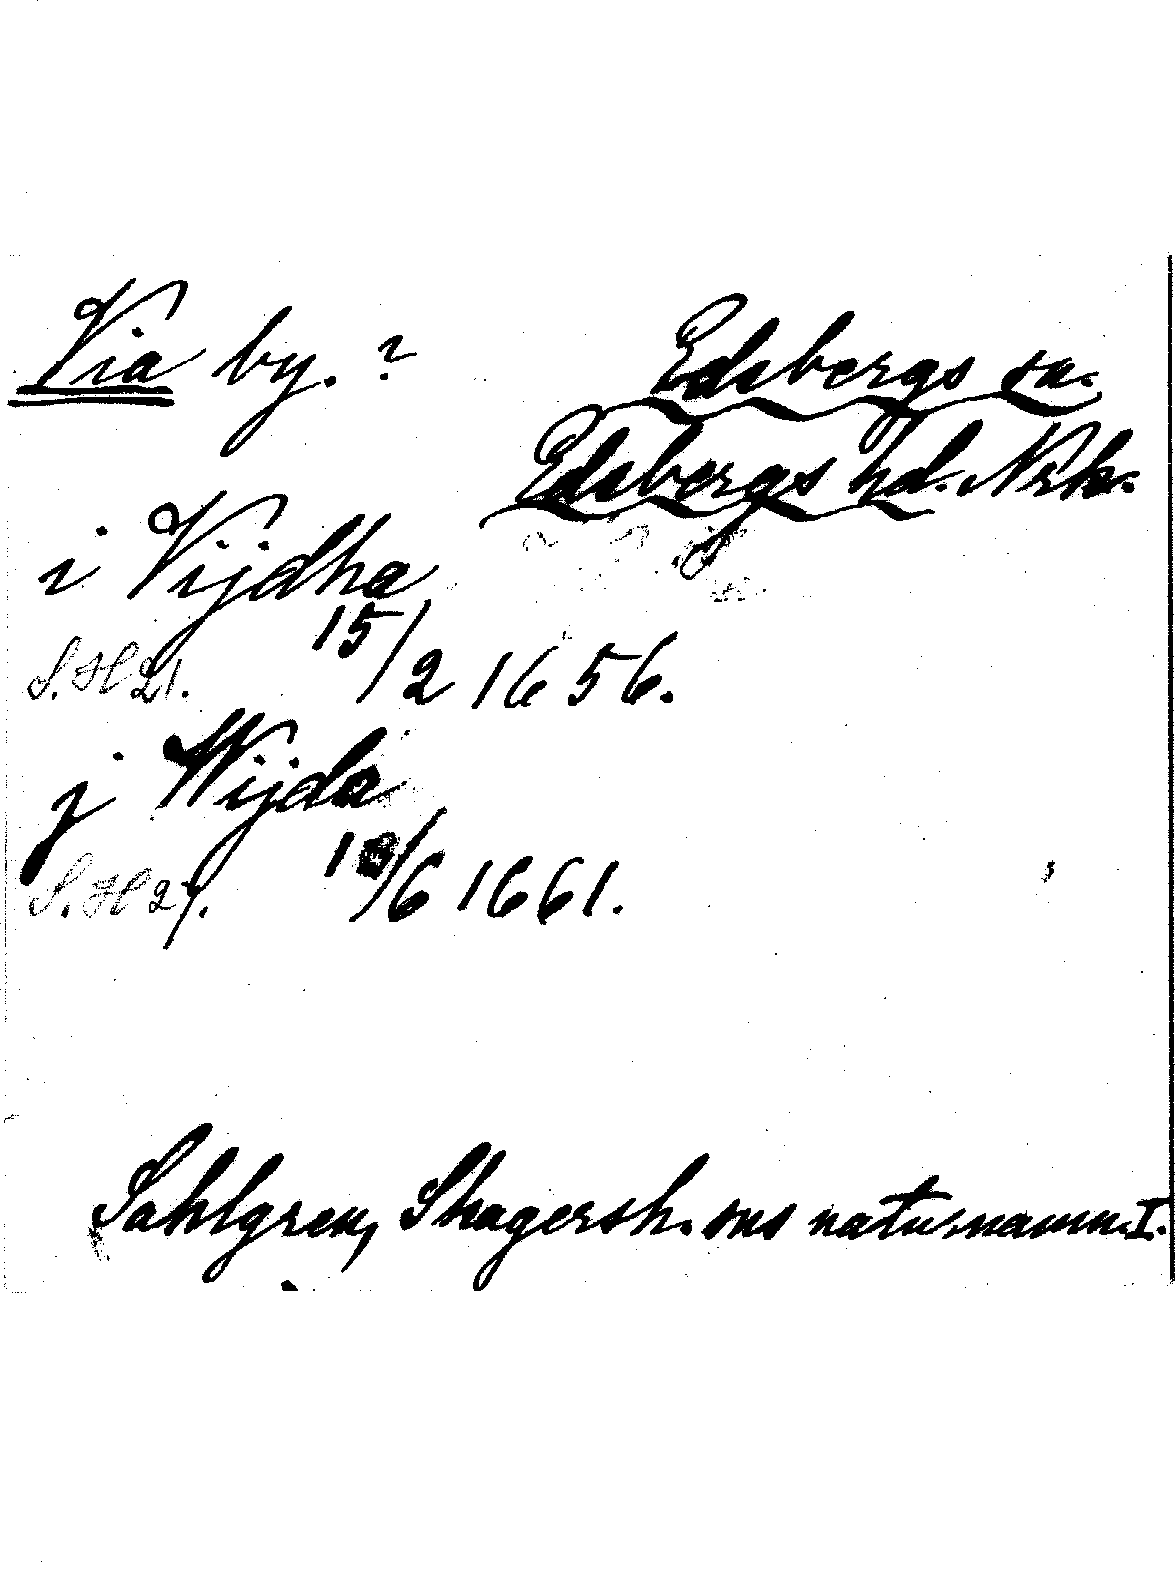 Via by. ?
Edsbergs sn.
Edsbergs hd. Nrk.
i Vijdha
S.H 21. 15/2 1656.
j Wijda
S.H 27. /6 1661.
Sahlgren, Skagersh. sns naturnamn. I.